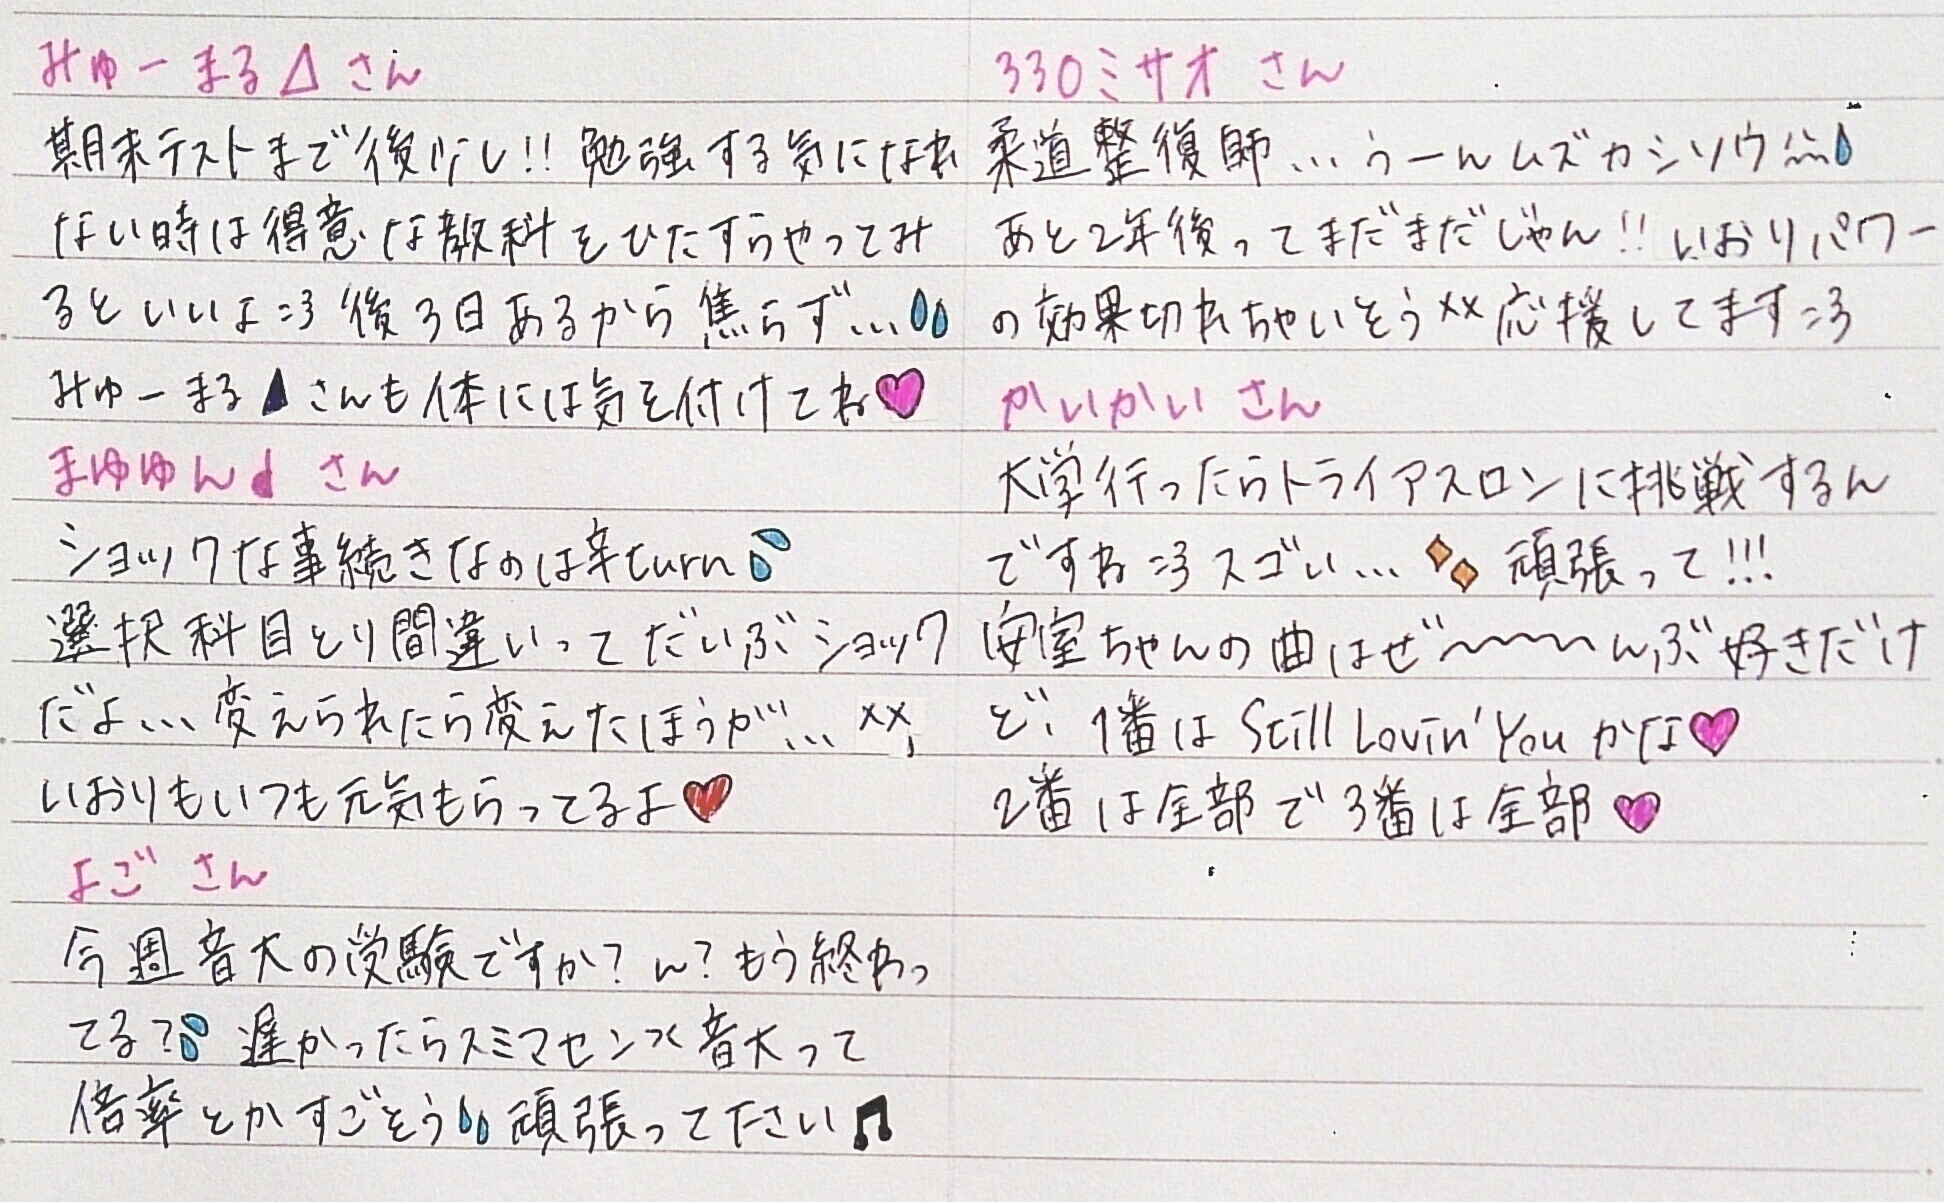 みゅーまる△さん
期末テストまで後少し!! 勉強する気になれ
ない時は得意な教科をひたすらやってみ
るといいよ:3 後3日あるから焦らず...
みゅーまる▲さんも体には気を付けてね♥
まゆゆん♩さん
ショックな事続きなのは辛turn
選択科目とり間違いってだいぶショック
だよ... 変えられたら変えたほうが... ××;
いおりもいつも元気もらってるよ♥
よごさん
今週音大の受験ですか? ん? もう終わっ
てる? 遅かったらスミマセン>< 音大って
倍率とかすごそう 頑張ってたさい♫
330ミサオさん
柔道整復師...うーんムズカシソウ
あと2年後ってまだまだじゃん!! いおりパワー
の効果切れちゃいそう×× 応援してます:3
かいかいさん
大学行ったらトライアスロンに挑戦するん
ですね:3 スゴい... 頑張って!!!
安室ちゃんの曲はぜ〜〜〜〜んぶ好きだけ
ど、1番は Still Lovin' You かな♥
2番は全部で3番は全部♥